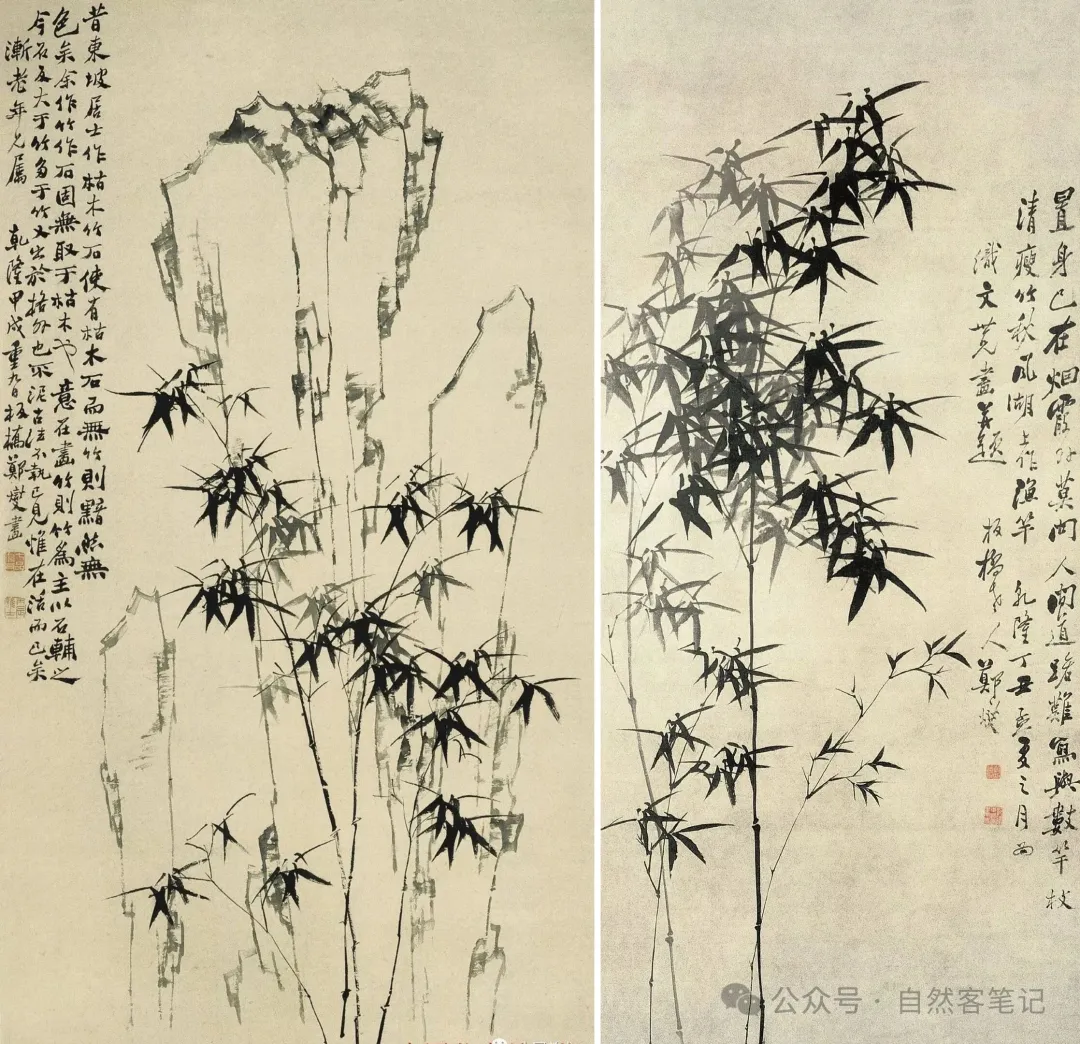 昔東坡居士作枯木竹石使有枯木石而無竹則黯然無
色矣余作竹作石固無取于枯木也意在畫竹則竹為主以石輔之
今石反大于竹多于竹又出於格外也不泥古法不執己見惟在活而已矣
漸老年兄屬 乾隆甲戌重九日板橋鄭燮畫
置身已在烟霞外莫問人間道路難寫與數竿枝
清瘦竹秋風湖上作漁竿 乾隆丁丑孟夏之月為
織文 畫並題 板橋老人鄭燮
公众号 · 自然客笔记